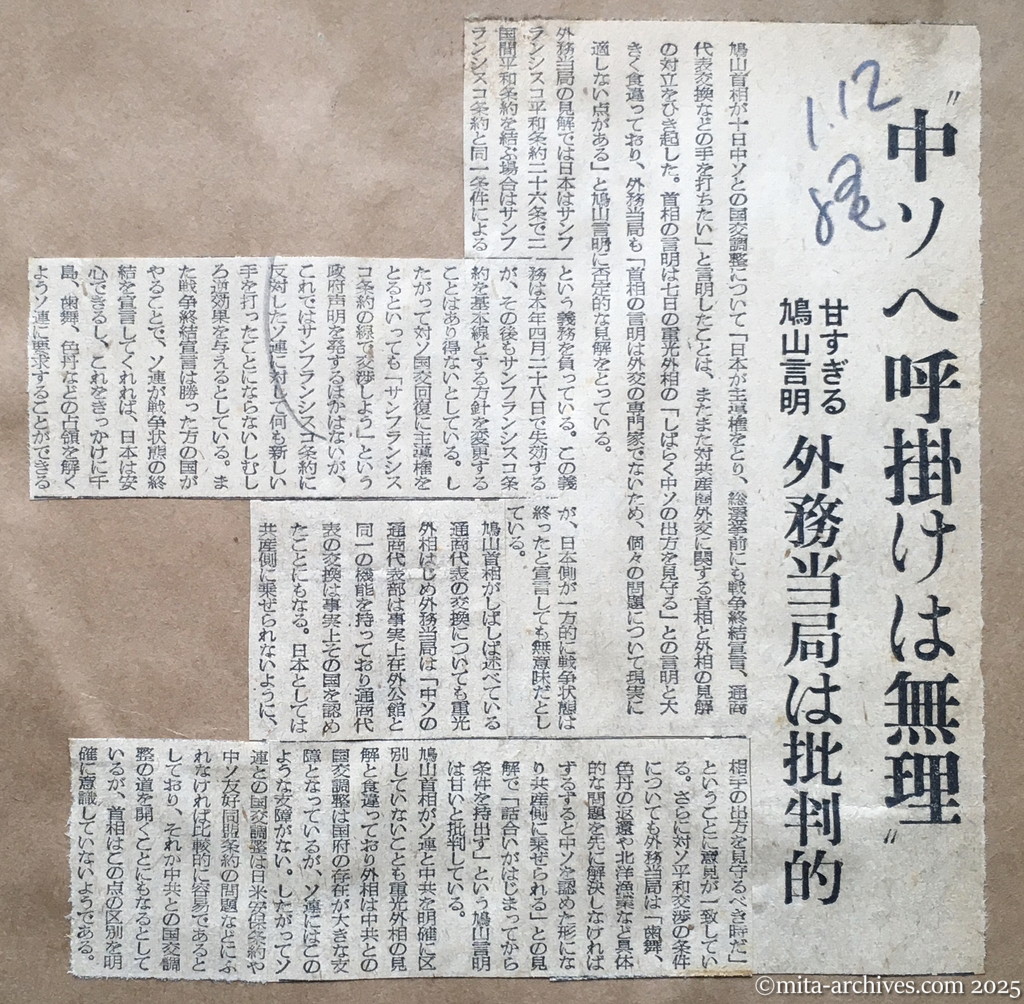 〝中ソへ呼掛けは無理〟
1.12
甘すぎる
鳩山言明
外務当局は批判的
鳩山首相が十日中ソとの国交調整について「日本が主導権をとり、総選挙前にも戦争終結宣言、通商
代表交換などの手を打ちたい」と言明したことは、またまた対共産圏外交に関する首相と外相の見解
の対立をひき起した。首相の言明は七日の重光外相の「しばらく中ソの出方を見守る」との言明と大
きく食違っており、外務当局も「首相の言明は外交の専門家でないため、個々の問題について現実に
適しない点がある」と鳩山言明に否定的な見解をとっている。
外務当局の見解では日本はサンフ
ランシスコ平和条約二十六条で二
国間平和条約を結ぶ場合はサンフ
ランシスコ条約と同一条件による
という義務を負っている。この義
務は本年四月二十八日で失効する
が、その後もサンフランシスコ条
約を基本線とする方針を変更する
ことはあり得ないとしている。し
たがって対ソ国交回復に主導権を
とるといっても「サンフランシス
コ条約の線で交渉しよう」という
政府声明を発するほかはないが、
これではサンフランシスコ条約に
反対したソ連に対して何も新しい
手を打ったことにならないしむし
ろ逆効果を与えるとしている。ま
た戦争終結宣言は勝った方の国が
やることで、ソ連が戦争状態の終
結を宣言してくれれば、日本は安
心できるし、これをきっかけに千
島、歯舞、色丹などの占領を解く
ようソ連に要求することができる
が、日本側が一方的に戦争状態は
終ったと宣言しても無意味だとし
ている。
鳩山首相がしばしば述べている
通商代表の交換についても重光
外相はじめ外務当局は「中ソの
通商代表部は事実上在外公館と
同一の機能を持っており通商代
表の交換は事実上その国を認め
たことにもなる。日本としては
共産側に乗ぜられないように、
相手の出方を見守るべき時だ」
ということに意見が一致してい
る。さらに対ソ平和交渉の条件
についても外務当局は「歯舞、
色丹の返還や北洋漁業など具体
的な問題を先に解決しなければ
ずるずると中ソを認めた形にな
り共産側に乗ぜられる」との見
解で「話合いがはじまってから
条件を持出す」という鳩山言明
は甘いと批判している。
鳩山首相がソ連と中共を明確に区
別していないことも重光外相の見
解と食違っており外相は中共との
国交調整は国府の存在が大きな支
障となっているが、ソ連にはこの
ような支障がない。したがってソ
連との国交調整は日米安保条約や
中ソ友好同盟条約の問題などにふ
れなければ比較的に容易であると
しており、それが中共との国交調
整の道を開くことにもなるとして
いるが、首相はこの点の区別を明
確に意識していないようである。
©mita-archives.com 2025